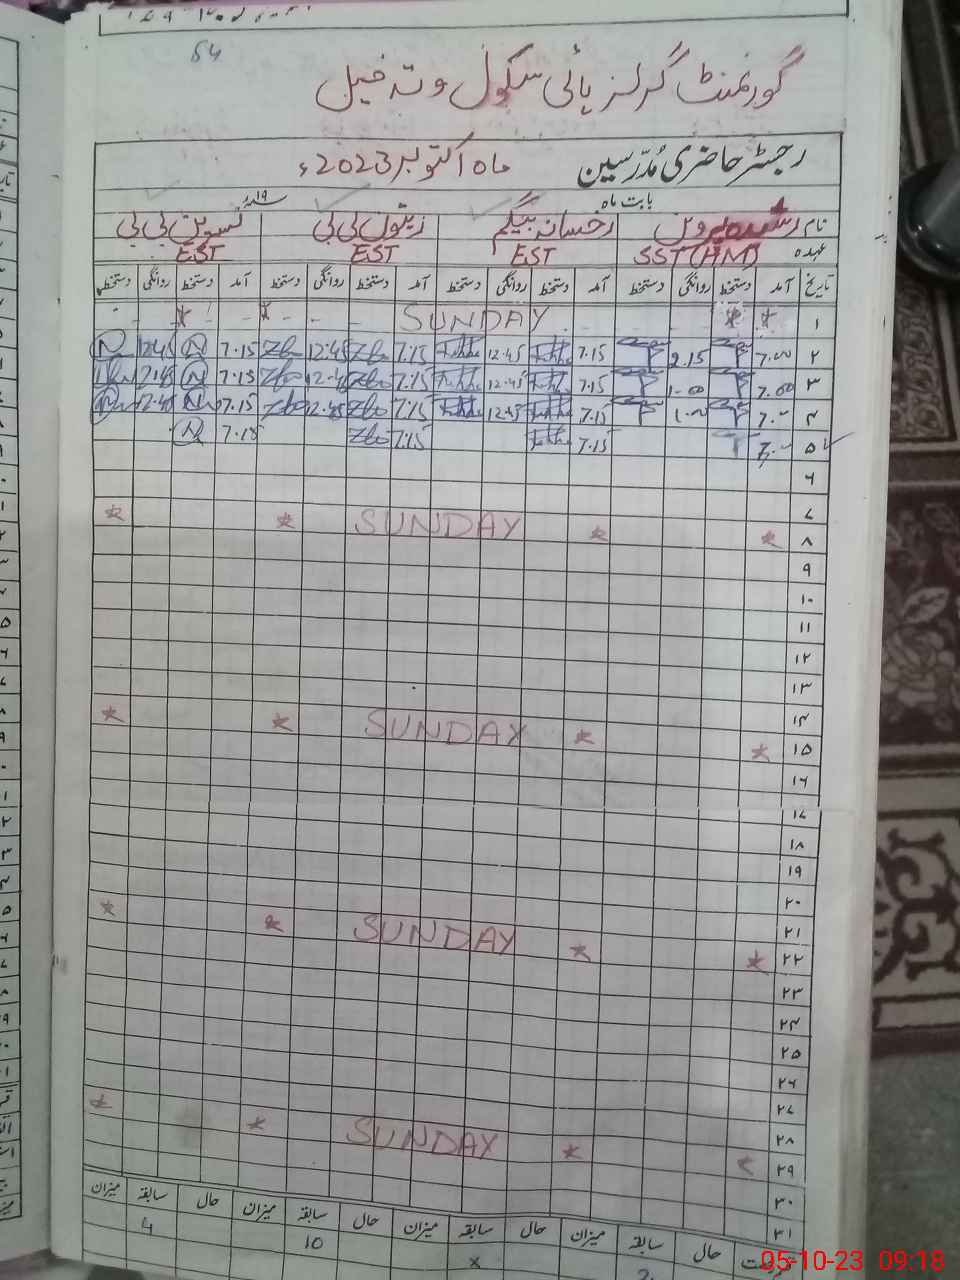 54
گورنمنٹ گرلز ہائی سکول وتہ خیل
رجسٹر حاضری مُدرّسین ماہ اکتوبر 2023ء
بابت ماہ
نام رخسانہ بیگم زیتون بی بی نسرین بی بی
عہدہ SST (HM) EST EST EST
تاریخ آمد دستخط روانگی دستخط آمد دستخط روانگی دستخط آمد دستخط روانگی دستخط آمد دستخط روانگی دستخط
۱ SUNDAY
۲ 7.00 2.15 7.15 12.45 7.15 12.45 7.15 12.45
۳ 7.00 1.00 7.15 12.45 7.15 12.45 7.15 12.45
۴ 7.15 12.45 7.15 12.45 7.15 12.45
۵ 7.15 7.15 7.15
۶
۷
۸ SUNDAY
۹
۱۰
۱۱
۱۲
۱۳
۱۴
۱۵ SUNDAY
۱۶
۱۷
۱۸
۱۹
۲۰
۲۱
۲۲ SUNDAY
۲۳
۲۴
۲۵
۲۶
۲۷
۲۸
۲۹ SUNDAY
۳۰
۳۱
حال سابقہ میزان حال سابقہ میزان حال سابقہ میزان حال سابقہ میزان
x 10 4
05-10-23 09:18